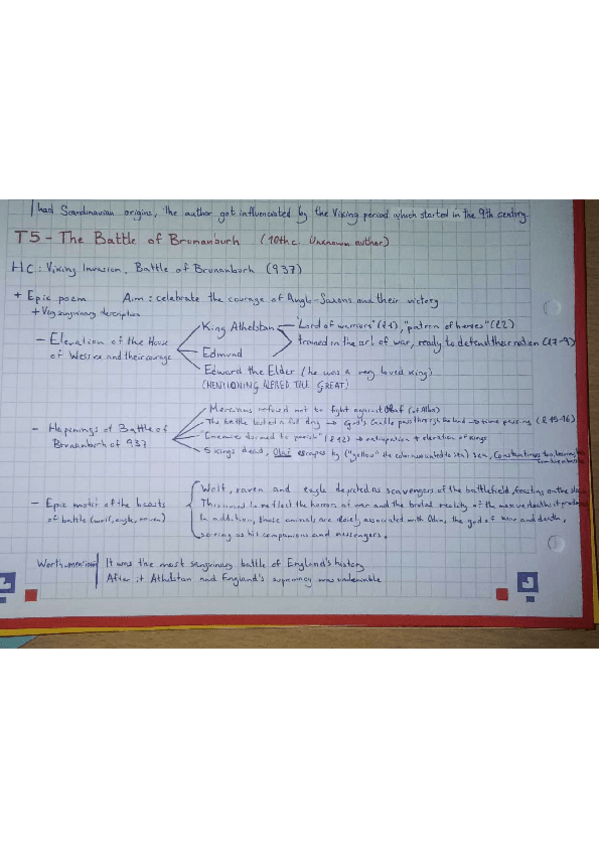 had Scandinavian origins, the author got influenciated by the Viking period which started in the 9th century.
T5 - The Battle of Brunanburh (10th c. Unknown author)
HC: Viking Invasion, Battle of Brunanburh (937)
+ Epic poem Aim: celebrate the courage of Anglo-Saxons and their victory
+ Very sanguinary description
- Elevation of the House of Wessex and their courage
King Athelstan
"Lord of warriors" (l.1), "patron of heroes" (l.2)
trained in the art of war, ready to defend their nation (l.7-9)
Edmund
Edward the Elder (he was a very loved king)
(MENTIONING ALFRED THE GREAT)
- Hapenings of Battle of Brunanburh of 937
Mercians refused not to fight against Olaf
The battle lasted a full day → God's Candle pass through the land → time passing
"Enemies doomed to perish" (l.12) → anticipation + elevation of kings
5 kings dead, Olaf escapes by ("yellow" the color
- Epic motif of the beasts of battle (wolf, eagle, raven)
Wolf, raven and eagle depicted as scavengers of the battlefield, feasting on the
This used to reflect the horrors of war and the brutal reality of the
In addition, those animals are closely associated with Odin, the god of war and death,
serving as his companions and messengers.
Worth mention
It was the most sanguinary battle of England's history
After it Athelstan and England's supremacy was undeniable